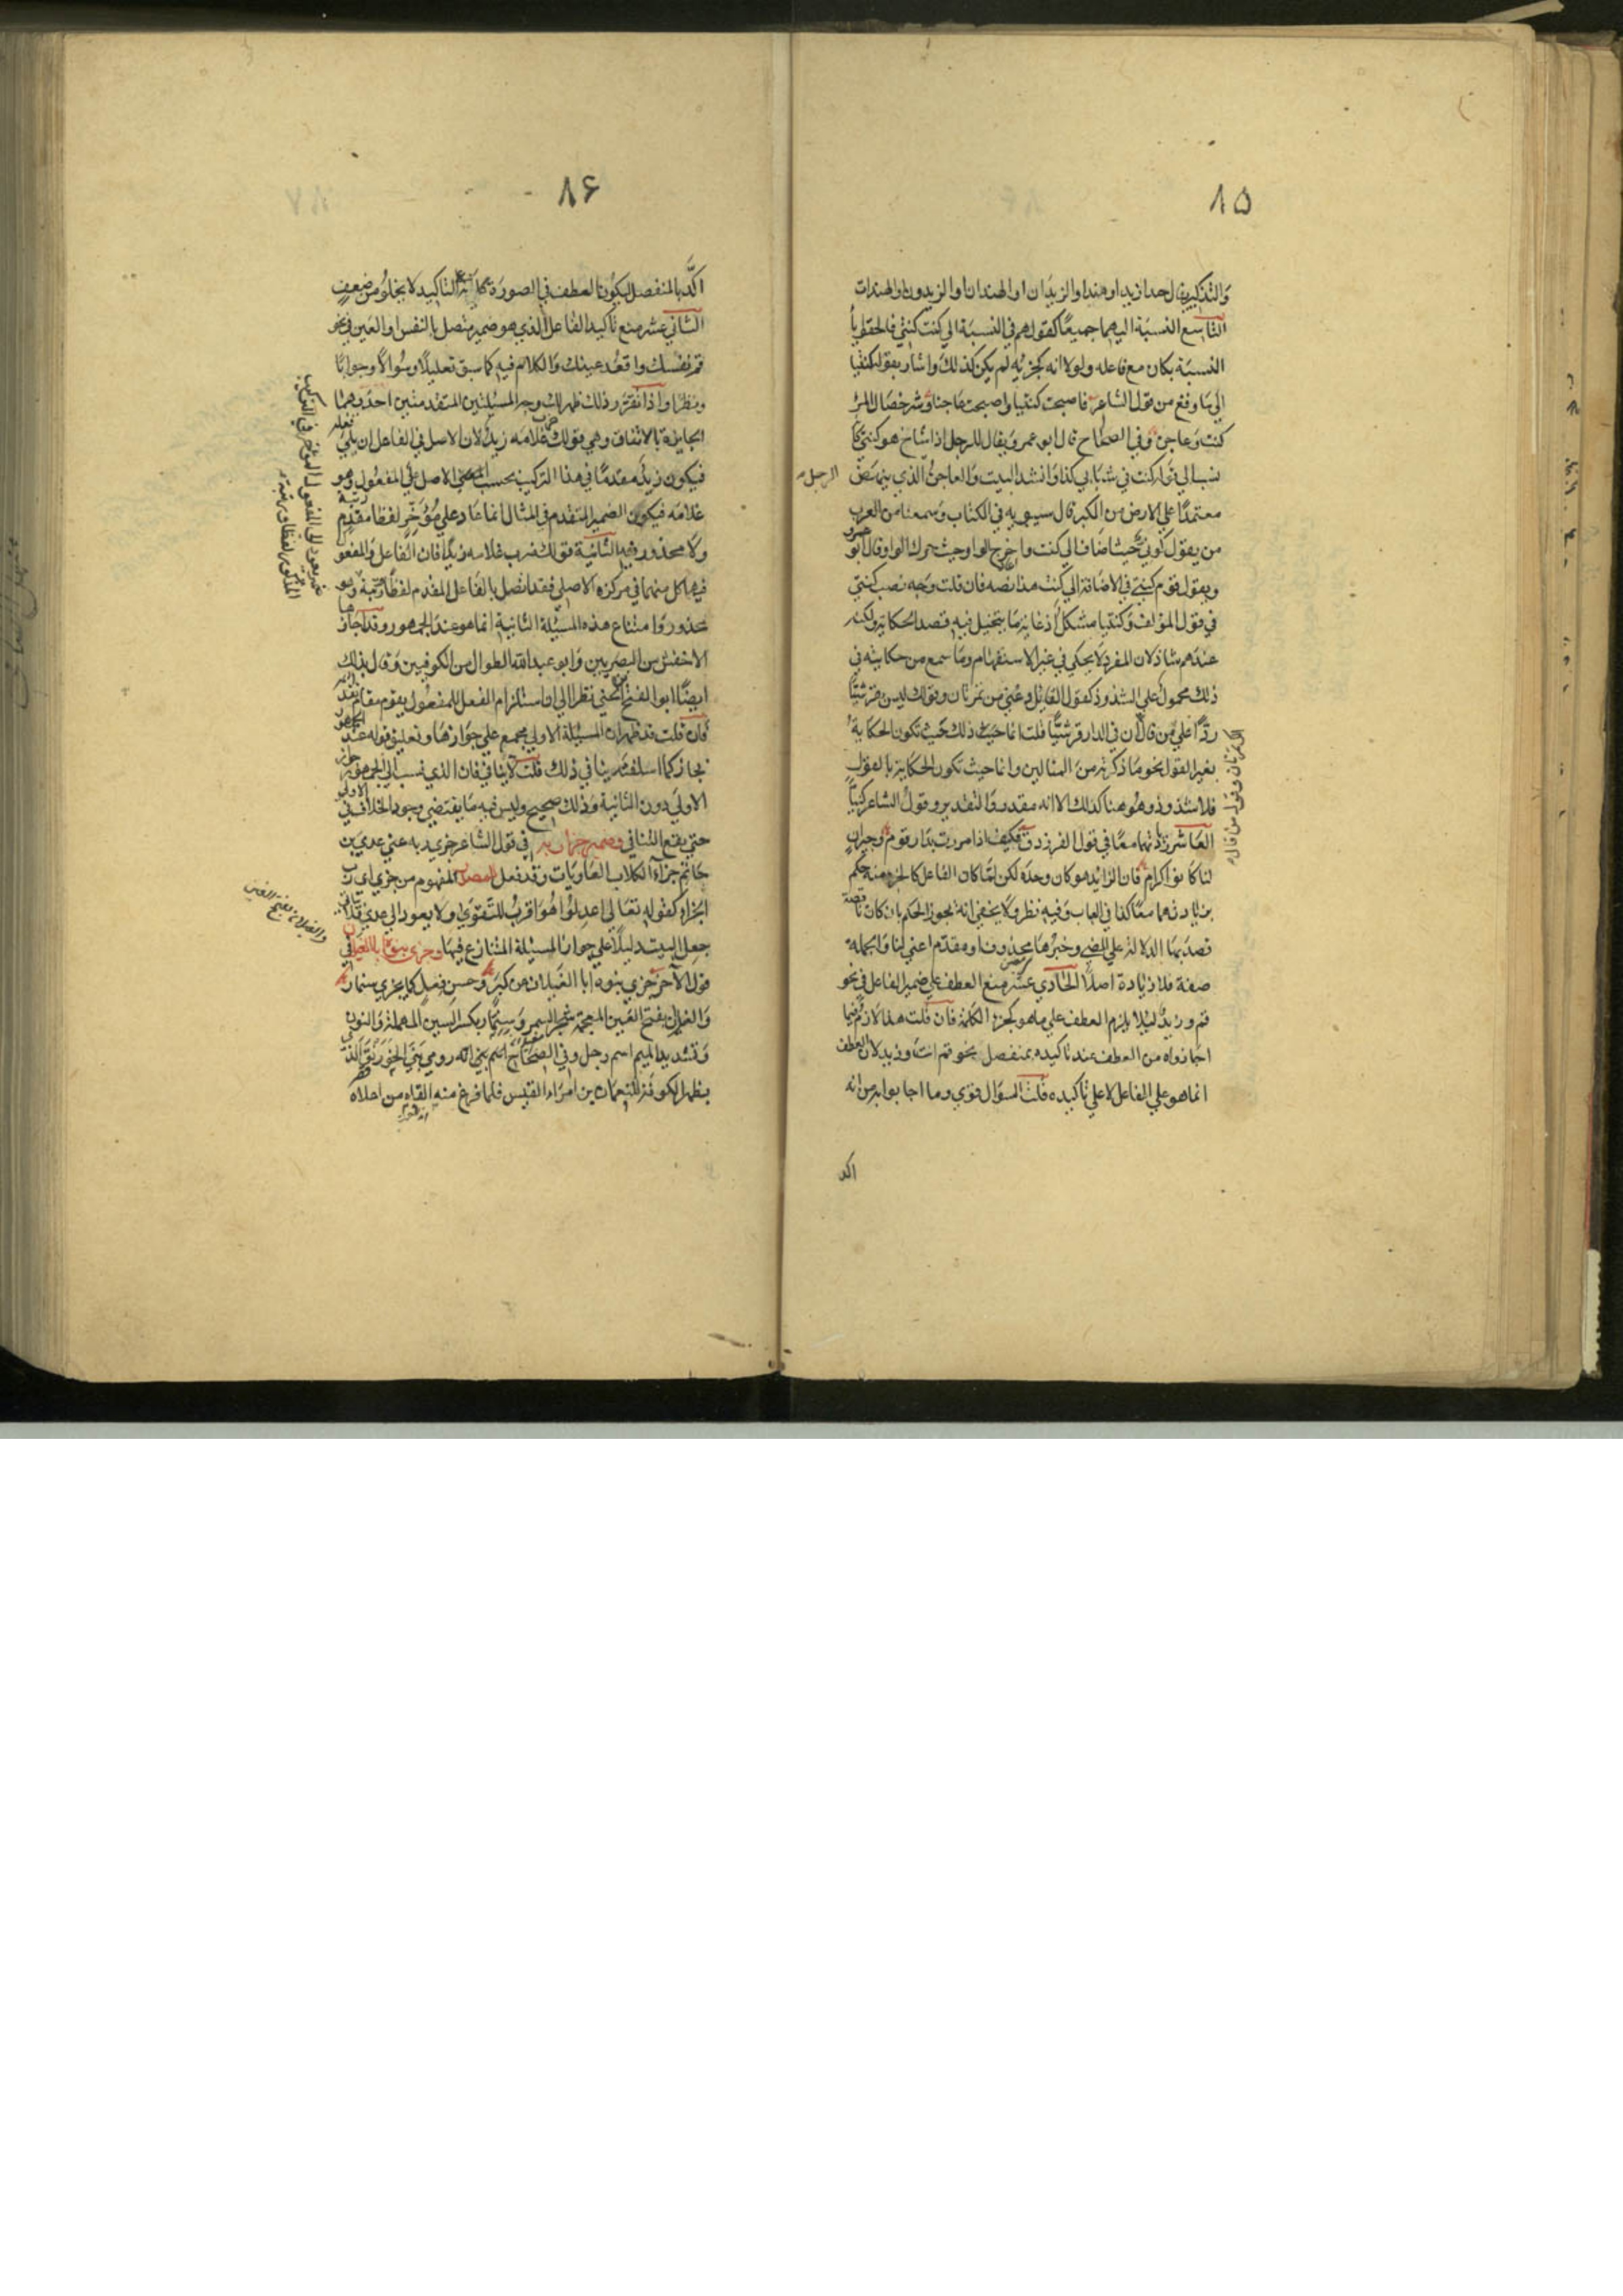 ٨٥
والتذكير يقال حدا زيد او هند او الزيدان او الهندان او الزيدون او الهندات
التاسع النسبة اليهما جميعا كقولهم في النسبة الي كنت كنتي فالحقوا يا
النسبة بكان مع فاعله ولولا انه كجزئه لم يكن كذلك واشار بقوله كنتيا
الي ما وقع من قول الشاعر فاصبحت كنتيا واصبحت عاجنا وشر خصال المرء
كنت وعاجن وفي الصحاح قال ابو عمرو يقال للرجل اذا شاخ هو كنتي كا
نسب الي قوله كنت في شبابي كذا وانشد البيت والعاجن الذي ينهض
الرجل
معتمدا علي الارض من الكبر قال سيبويه في الكتاب وسمعنا من العرب
من يقول كوني حيث اضاف الي كنت واخرج الواو حيث حرك الواو قال ابو عمرو
ويقول قوم كنتي في الاضافة الي كنت هذا نصه فان قلت وجه نصب كنتي
في قول المؤلف وكنتيا مشكل اذ غاية ما يتخيل فيه قصد الحكاية ولكنه
عندهم شاذ لان المفرد لا يحكي في غير الاستفهام وما سمع من حكايته في
ذلك محمول علي الشذوذ كقول القائل دعني من تمرتان وقولك ليس قرشيا
ردا علي من قال ان في الدار قرشيا قلت انما حيث ذلك حيث تكون الحكاية
بغير القول نحو ما ذكرته من المثالين واما حيث تكون الحكاية بالقول
فلا شذوذ وهو هنا كذلك الا انه مقدر والتقدير وقول الشاعر كنتيا
العاشر زيادتهما معا في قول الفرزدق فكيف اذا مررت بدار قوم وجيران
لنا كانوا كرام فان الزائد هو كان وحده لكن لما كان الفاعل كالجزء منه حكم
بزيادتهما معا كذا في العباب وفيه نظر ولا يخفي انه يجوز الحكم بان كان ناقصة
قصد بها الدلالة علي المضي وخبرها محذوف او مقدم اعني لنا والجملة
صفة فلا زيادة اصلا الحادي عشر منع العطف علي ضمير الفاعل في نحو
قم وزيد لئلا يلزم العطف علي ما هو كجزء الكلمة فان قلت هذا لازم فيما
اجازواه من العطف عند تاكيده بمنفصل نحو قم انت وزيد لان العطف
انما هو علي الفاعل لا علي تاكيده قلت السؤال قوي وما اجابوا به من انه
اكد
٨۶
اكد بالمنفصل ليكون العطف في الصورة علي التاكيد لا يخلو من ضعف
الثاني عشر منع تاكيد الفاعل الذي هو ضمير متصل بالنفس او العين في نحو
قم نفسك واقعد عينك والكلام فيه كما سبق تعليلا وسؤالا وجوابا
ونظرا واذا تقرر ذلك ظهر لك وجه المسئلتين المتقدمتين احدهما
الجايزة بالاتفاق وهي قولك ضرب غلامه زيد لان الاصل في الفاعل ان يلي فعله
فيكون زيد مقدما في هذا التركيب بحسب الاصل علي المفعول وهو
غلامه فيكون الضمير المتقدم في المثال انما عاد علي مؤخر لفظا مقدم رتبة
ولا محذور فيه الثانية قولك ضرب غلامه زيدا فان الفاعل والمفعول
فيها كل منهما في مركزه الاصلي فقد اتصل بالفاعل المقدم لفظا ورتبة وهو
محذور وامتناع هذه المسئلة الثانية انما هو عند الجمهور وقد اجازها
الاخفش من البصريين وابو عبد الله الطوال من الكوفيين وقال بذلك
ايضا ابو الفتح بن جني نظرا الي ان استلزام الفعل للمفعول يقوم مقام تقدمه
فان قلت قد ظهر ان المسئلة الاولي مجمع علي جوازها وتعليق قوله عند الجمهور
بجاز كما اسلفته ينافي ذلك قلت لا ينافي فان الذي نسب الي الجمهور جواز
الاولي دون الثانية وذلك صحيح وليس فيه ما يقتضي وجود الخلاف في الاولي
حتي يقع التنافي وضمير جزاء به في قول الشاعر جزي ربه عني عدي بن
حاتم جزاء الكلاب العاويات وقد فعل للمصدر المفهوم من جزي اي رب
الجزاء كقوله تعالي اعدلوا هو اقرب للتقوي ولا يعود الي عدي فلا يتاتي
جعل البيت دليلا علي جواز المسئلة المتنازع فيها وجزي بنوه ابا الغيلان في
قول الآخر جزي بنوه ابا الغيلان عن كبر وحسن فعل كما يجزي سنمار
والغيلان بفتح الغين المعجمة شجر السمر وسنمار بكسر السين المهملة والنون
وتشديد الميم اسم رجل وفي الصحاح اسم بني اله رومي بني الخورنق الذي
بظهر الكوفة للنعمان بن امراء القيس فلما فرغ منه القاه من اعلاه
ضمير يعود الي المفعول المؤخر في التركيب
المذكور لفظا ورتبة
والغيلان بفتح الغين